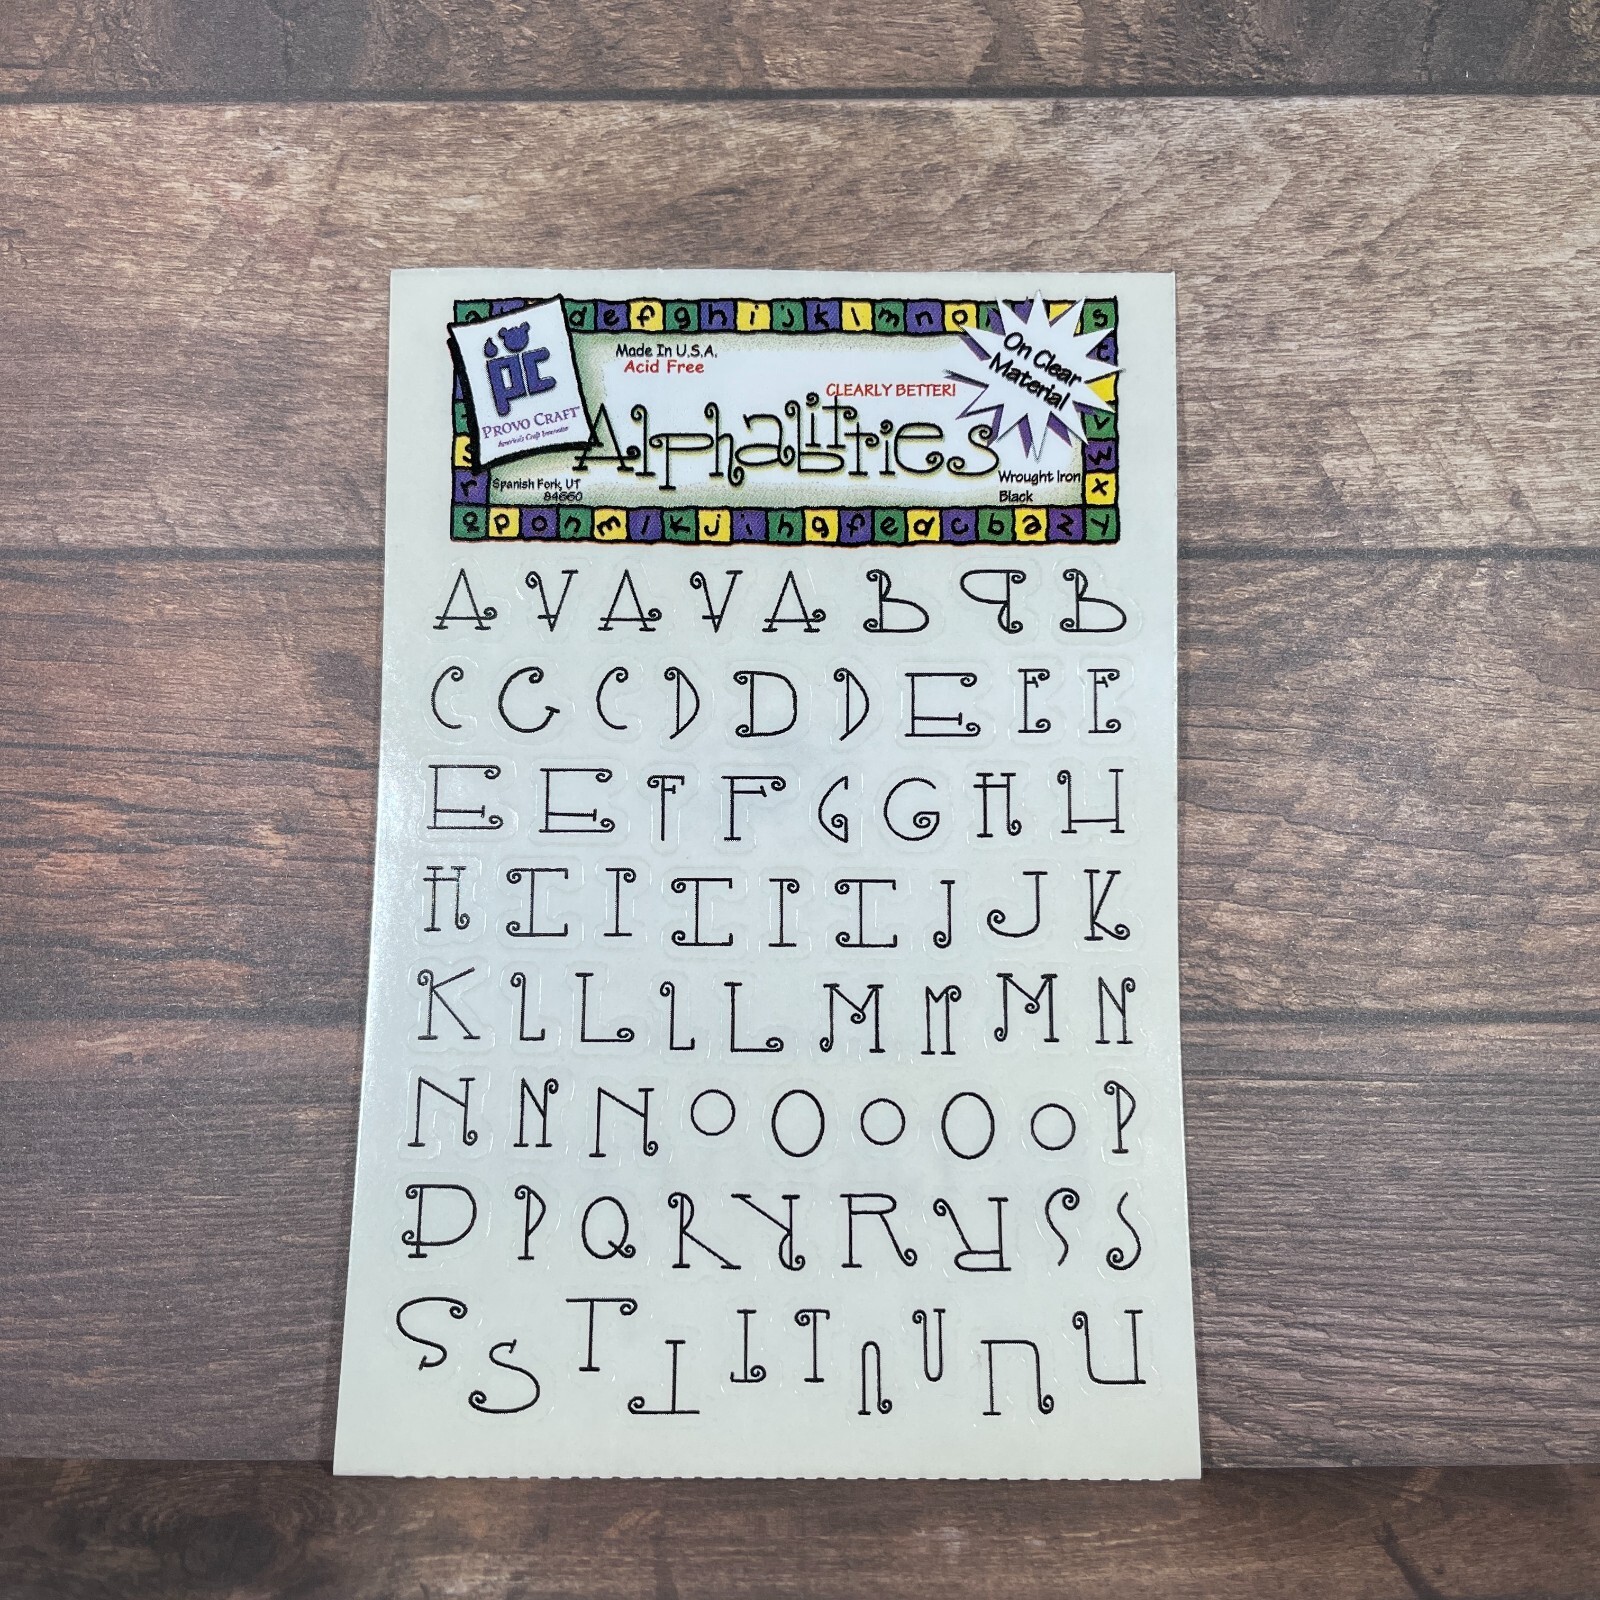 d e f g h i j k l m n o s
Made In U.S.A.
Acid Free
On Clear
Material
pc
PROVO CRAFT
America's Craft Innovator
CLEARLY BETTER!
Alphabitties
Spanish Fork, UT
84660
Wrought Iron
Black
r
v
w
x
q p o n m l k j i h g f e d c b a z y
A A A A A B B B
C G C D D D E E E
E E F F G G H H
H I I I I I J J K
K L L L L M M M N
N N N O O O O O P
P P Q R R R R S S
S S T T T T U U U U